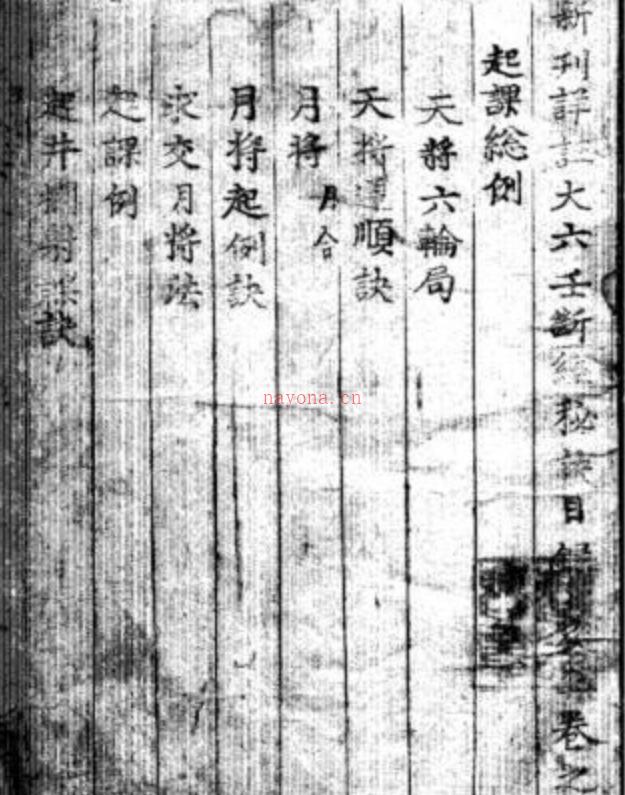 新刊詳註大六壬斷經秘訣目錄 卷之
起課總例
天將六輪局
天將逆順訣
月將 月合
月將起例訣
求交月將法
起課例
起井欄射課訣
nayona.cn